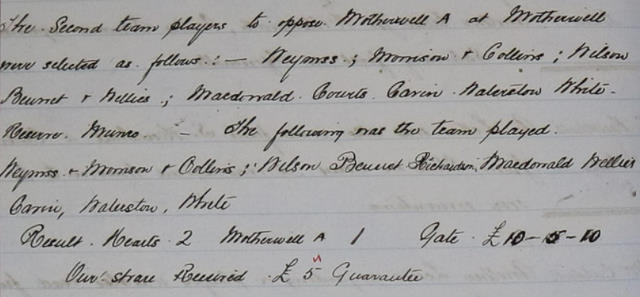 The Second team players to oppose Motherwell A at Motherwell
were selected as follows:— Weymss; Morrison & Collins; Wilson
Bennet & Wellies; Macdonald. Courts. Cavin. Walerston White-
Reserve. Munro — The following was the team played.
Weymss & Morrison & Collins; Wilson Bennet Richardson, Macdonald Wellies
Cavin, Walerston, White
Result. Hearts. 2 Motherwell A 1 Gate. £10-5-10
Our share Received £5 Guarantee